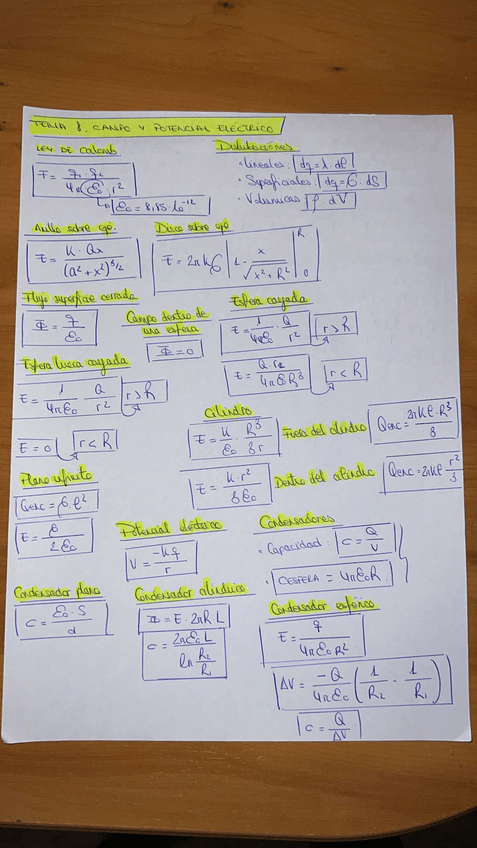 TEMA 8. CAMPO Y POTENCIAL ELÉCTRICO
LEY DE COLOMB
F = q1 · q2 / 4π ε0 · r²
ε0 = 8,85 · 10⁻¹²
Distribuciones
• Lineales. dq = λ dl
• Superficiales dq = σ · dS
• Volumicas ρ dV
Anillo sobre eje.
E = K · Qx / (a² + x²)^3/2
Disco sobre eje
E = 2πKσ | 1 - x / √(x² + R²) | R 0
Flujo superficie cerrada
Φ = q / ε0
Campo dentro de
una esfera
Φ = 0
Esfera cargada
E = 1 / 4πε0 · Q / r² r > R
E = Q · r / 4πε0R³ r < R
Esfera hueca cargada
E = 1 / 4πε0 Q / r² r > R
E = 0 r < R
Cilindro
E = K / ε0 · R³ / 3r Fuera del cilindro Qenc = 2πKl · R³ / 3
E = K r² / 3ε0 Dentro del cilindro Qenc = 2πKl r³ / 3
Plano infinito
Qenc = σ l²
E = σ / 2ε0
Potencial eléctrico
V = -Kq / r
Condensadores
• Capacidad. C = Q / V
• CESFERA = 4πε0R.
Condensador plano
C = ε0 · S / d
Condensador cilíndrico
Φ = E · 2πR · L
C = 2πε0 L / ln R2 / R1
Condensador esférico
E = q / 4πε0 R²
ΔV = -Q / 4πε0 ( 1 / R2 - 1 / R1 )
C = Q / ΔV